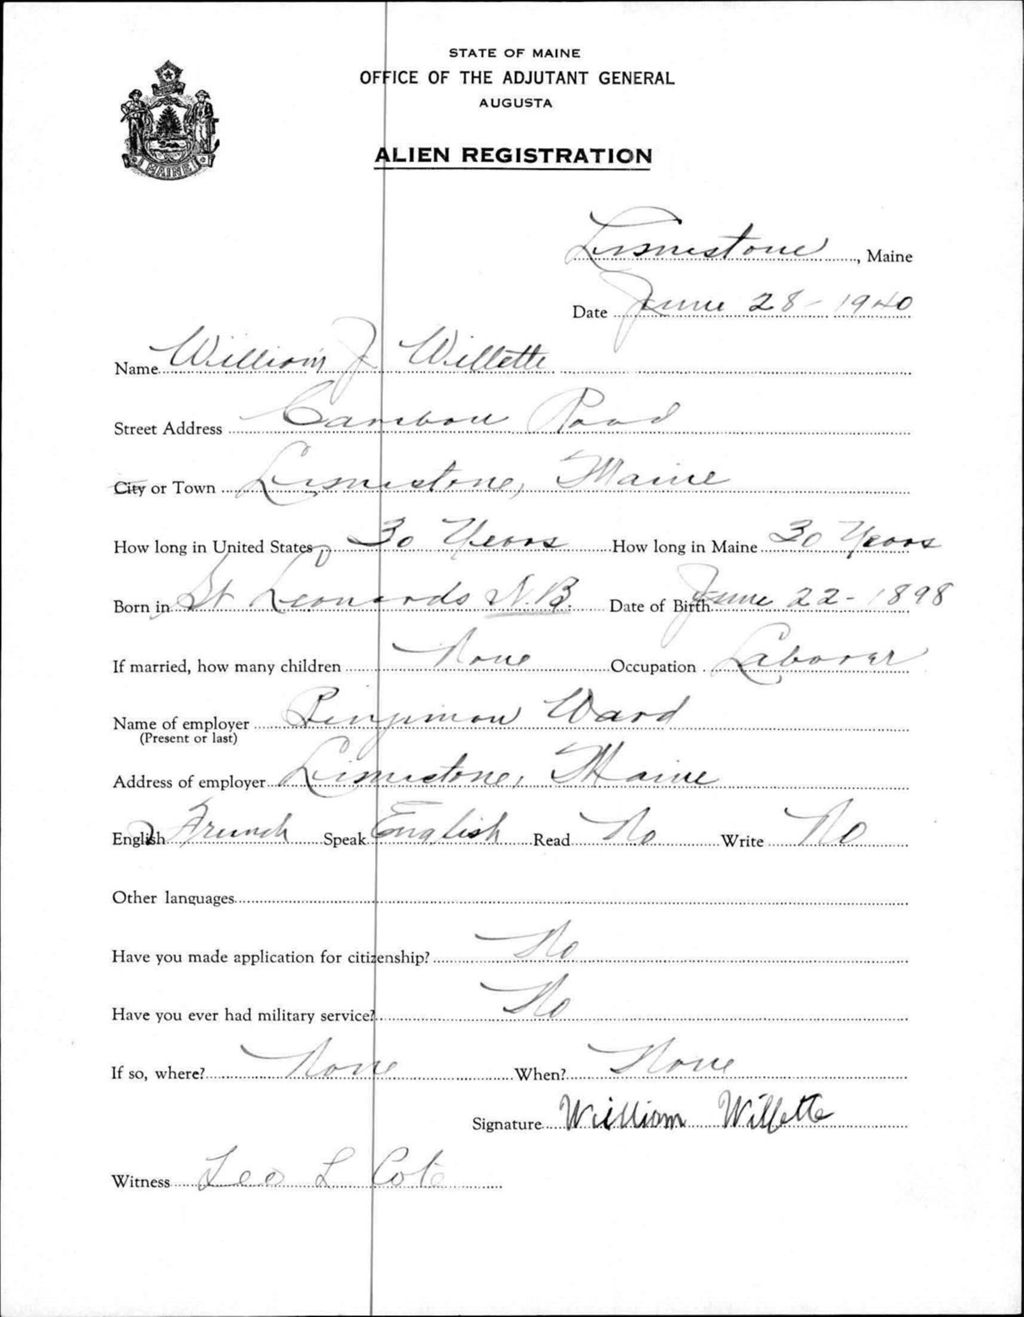 STATE OF MAINE
OFFICE OF THE ADJUTANT GENERAL
AUGUSTA
ALIEN REGISTRATION
MAINE
Limestone, Maine
Date June 28 - 1940
Name William J Willette
Street Address Caribou Road
City or Town Limestone, Maine
How long in United States 30 Years How long in Maine 30 Years
Born in St Leonards N.B. Date of Birth June 22 - 1898
If married, how many children None Occupation Laborer
Name of employer Ward
(Present or last)
Address of employer Limestone, Maine
English French Speak English Read No Write No
Other languages
Have you made application for citizenship? No
Have you ever had military service? No
If so, where? None When? None
Signature William Willette
Witness Leo L Cote